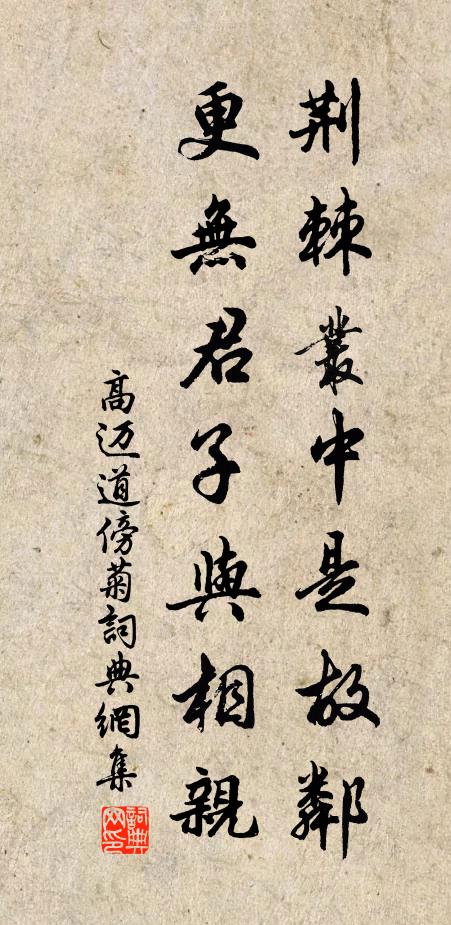 荆棘叢中是故鄰
更無君子與相親
高迈道傍菊詞典網集
詞典网印